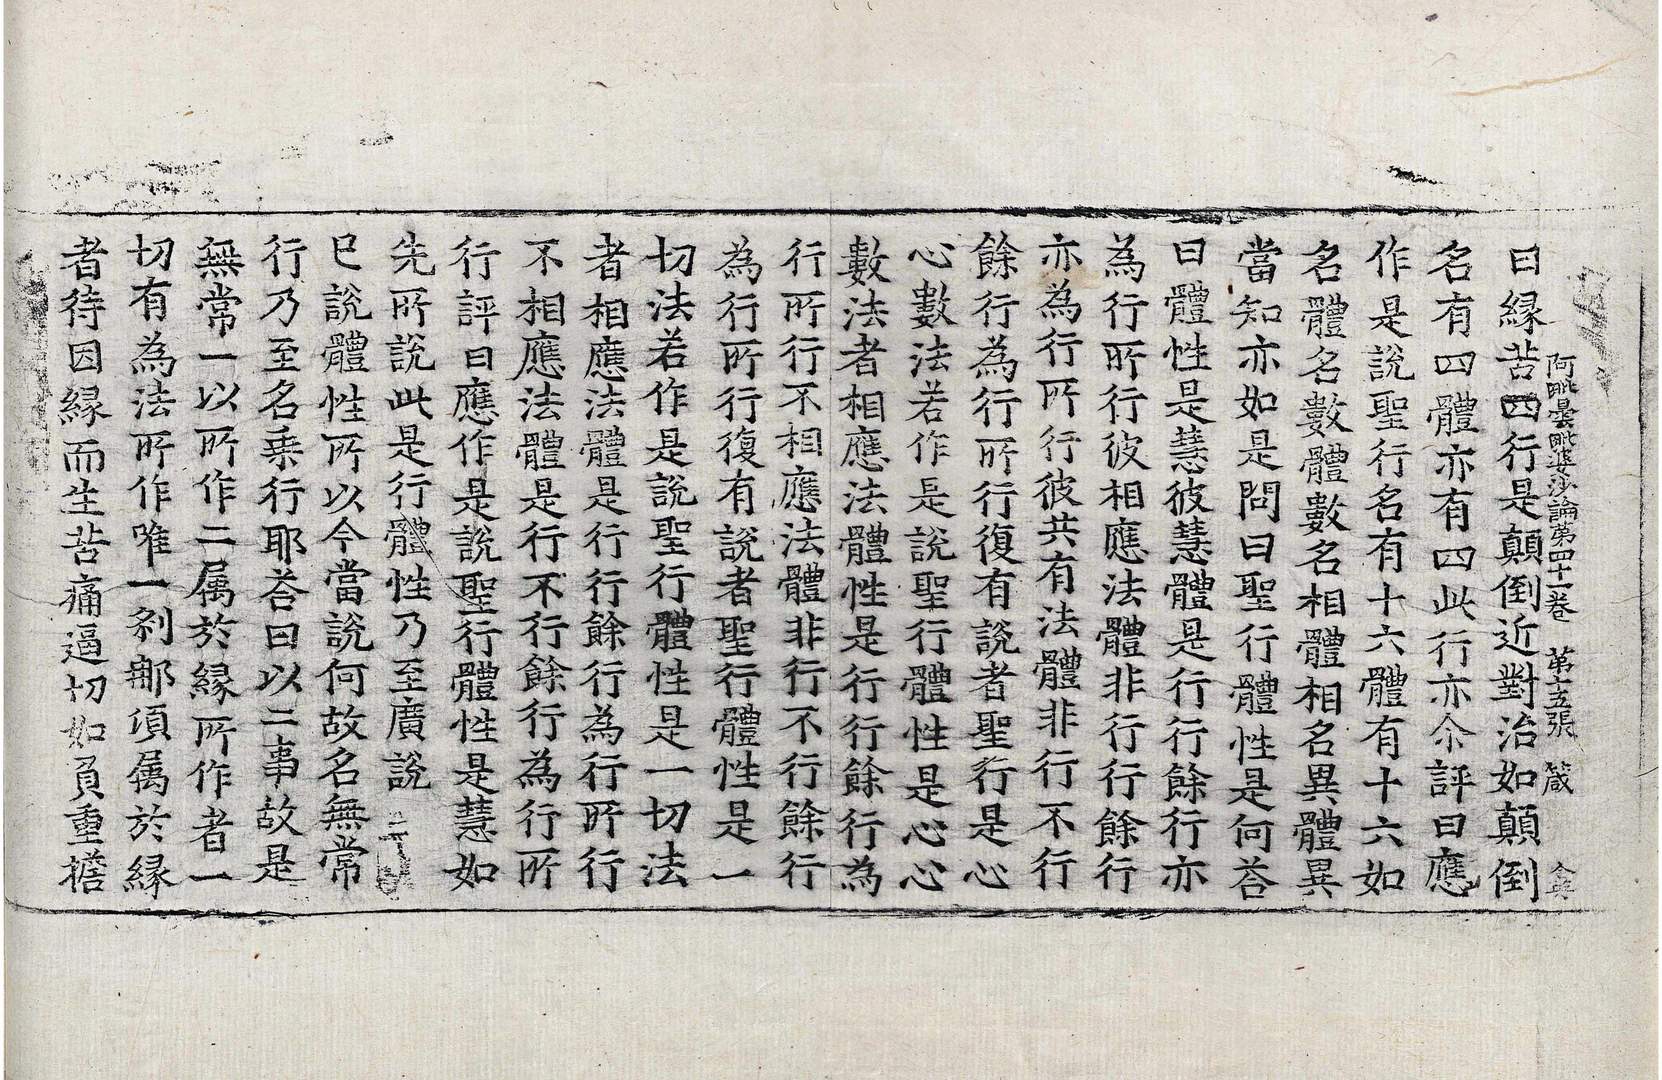 阿毗曇毗婆沙論第四十一卷 第十五張 箴
曰緣苦四行是顛倒近對治如顛倒
名有四體亦有四此行亦尒評曰應
作是說聖行名有十六體有十六如
名體名數體數名相體相名異體異
當知亦如是問曰聖行體性是何荅
曰體性是慧彼慧體是行行餘行亦
為行所行彼相應法體非行行餘行
亦為行所行彼共有法體非行不行
餘行為行所行復有說者聖行是心
心數法若作是說聖行體性是心心
數法者相應法體性是行行餘行為
行所行不相應法體非行不行餘行
為行所行復有說者聖行體性是一
切法若作是說聖行體性是一切法
者相應法體是行行餘行為行所行
不相應法體是行不行餘行為行所
行評曰應作是說聖行體性是慧如
先所說此是行體性乃至廣說
已說體性所以今當說何故名無常
行乃至名乗行耶荅曰以二事故是
無常一以所作二属於緣所作者一
切有為法所作唯一刹那頃属於緣
者待因緣而生苦痛逼切如負重擔